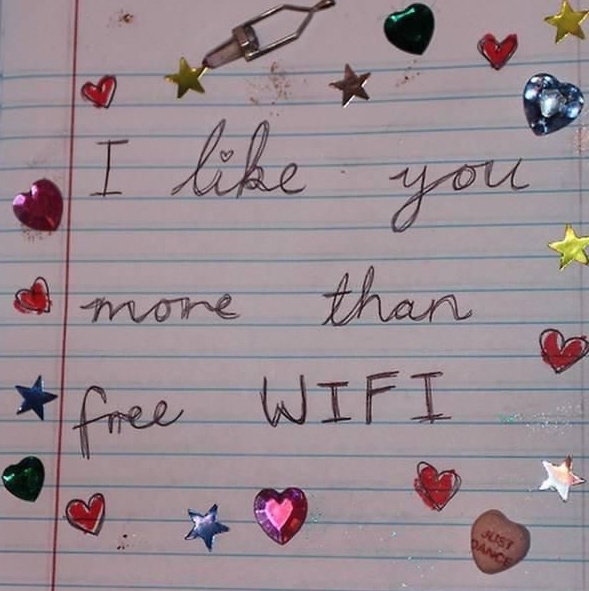 I like you
more than
free WIFI
JUST
DANCE